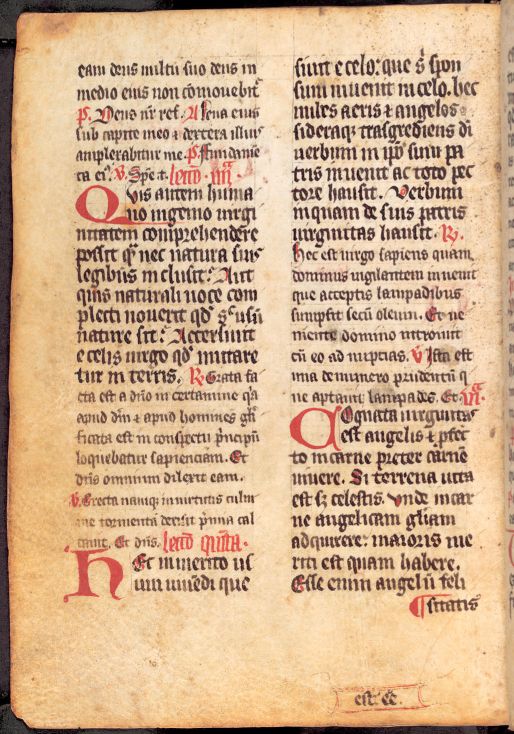 eam deus multū suo deus in
medio eius non cōmouebit̄
p̄. Deus nr̄ ref. A. Leua eius
sub capite meo & dextera illius
amplexabitur me. p̄. Fundamē
ta ei⁹. V. Spe t. lectō. iiiiᵃ.
Quis autem huma
no ingenio uirgi
nitatem comprehendere
possit qᵃ nec natura suis
legibus inclusit: Aut
quis naturali uoce com
plecti nouerit qd̄ sᵃ usū
nature sit: Accersiuit
e celis uirgo qd̄ imitare
tur in terris. R. Grata fa
cta est a dn̄o in certamine qᵃ
apud dm̄ & apud homines gl̄
ficata est in conspectu p̄ncipū
loquebatur sapienciam. Et
dn̄s omnium dilexit eam.
V. Erecta namq; in uirtutis culmi
ne tormenta decisit p̄ma cal
cauit. Et dn̄s. lectō quīta.
Het inmerito ui
uendi que
siuit e celo: que sˢ spon
sum inuenit in celo. hec
nubes aeris & angelos
sideraq; trāsgrediens di
uerbum in ip̄o sinu pa
tris inuenit ac toto pec
tore hausit. Verbum
inquam de sinu patris
uirginitas hausit. R.
hec est uirgo sapiens quam
dominus uigilantem inuenit
que acceptis lampadibus
sumpsit secū oleum. Et ue
niente domino introiuit
cū eo ad nuptias. V. Ista est
una de numero prudentū q
ne aptauit lampades. Et. viᵃ.
Cognata uirginitas
est angelis & p̄fec
to in carne preter carnē
uiuere. Si terrena uita
est sz celestis. Vnde in car
ne angelicam gl̄iam
adquirere: maioris me
riti est quam habere.
Esse enim angelū feli
¶ sitatis
est. Et.